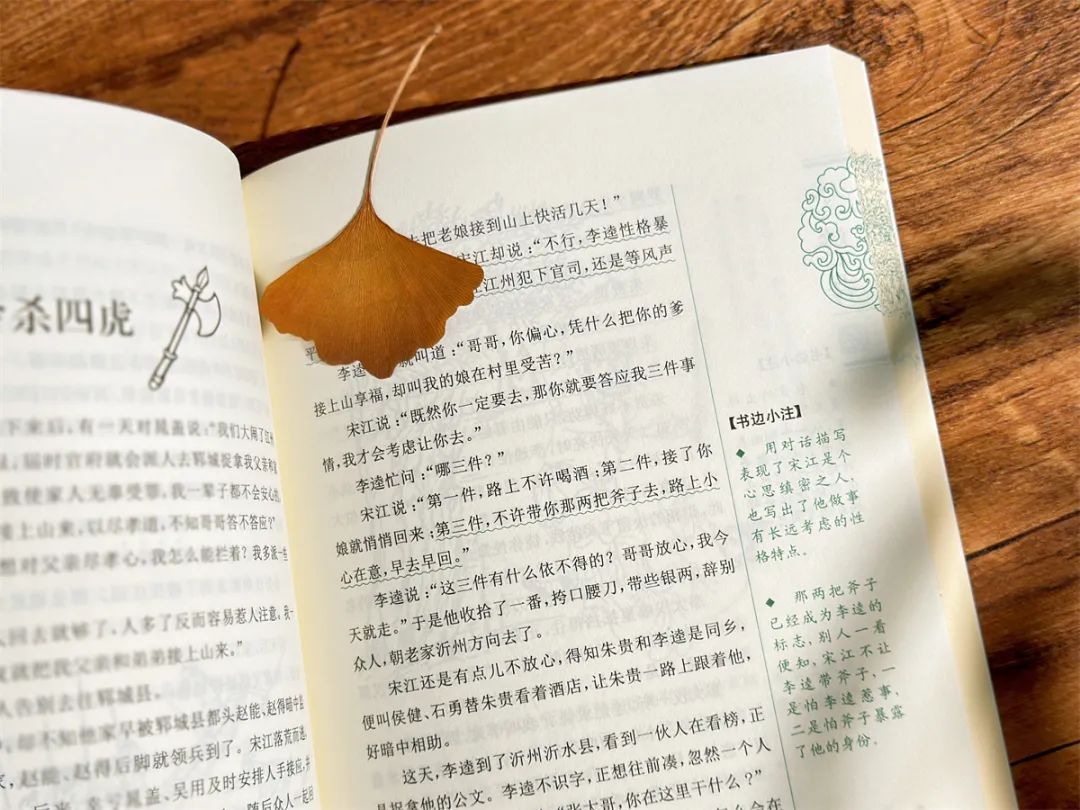 杀四虎
下来后，有一天对晁盖说：“我们大闹了江州
届时官府就会派人去郓城捉拿我父亲和家
致使家人无辜受罪，我一辈子都不会安心的。
接上山来，以尽孝道，不知哥哥答不答应？”
想对父亲尽孝心，我怎么能拦着？我多派一些
回去就够了，人多了反而容易惹人注意。我一
就把我父亲和弟弟接上山来。”
人告别去往郓城县，
却不知他家早被郓城县都头赵能、赵得暗中监
赵能、赵得后脚就领兵到了。宋江落荒而逃，
幸亏晁盖、吴用及时安排人手接应，
随后众人一起回
去把老娘接到山上快活几天！”
宋江却说：“不行，李逵性格暴
江州犯下官司，还是等风声
平
李逵 就叫道：“哥哥，你偏心，凭什么把你的爹
接上山享福，却叫我的娘在村里受苦？”
宋江说：“既然你一定要去，那你就要答应我三件事
情，我才会考虑让你去。”
李逵忙问：“哪三件？”
宋江说：“第一件，路上不许喝酒；第二件，接了你
娘就悄悄回来；第三件，不许带你那两把斧子去，路上小
心在意，早去早回。”
李逵说：“这三件有什么依不得的？哥哥放心，我今
天就走。”于是他收拾了一番，挎口腰刀，带些银两，辞别
众人，朝老家沂州方向去了。
宋江还是有点儿不放心，得知朱贵和李逵是同乡，
便叫侯健、石勇替朱贵看着酒店，让朱贵一路上跟着他，
好暗中相助。
这天，李逵到了沂州沂水县，看到一伙人在看榜，正
是捉拿他的公文。李逵不识字，正想往前凑，忽然一个人
“张大哥，你在这里干什么？”
【书边小注】
◆ 用对话描写
表现了宋江是个
心思缜密之人，
也写出了他做事
有长远考虑的性
格特点。
◆ 那两把斧子
已经成为李逵的
标志，别人一看
便知，宋江不让
李逵带斧子，一
是怕李逵惹事，
二是怕斧子暴露
了他的身份。